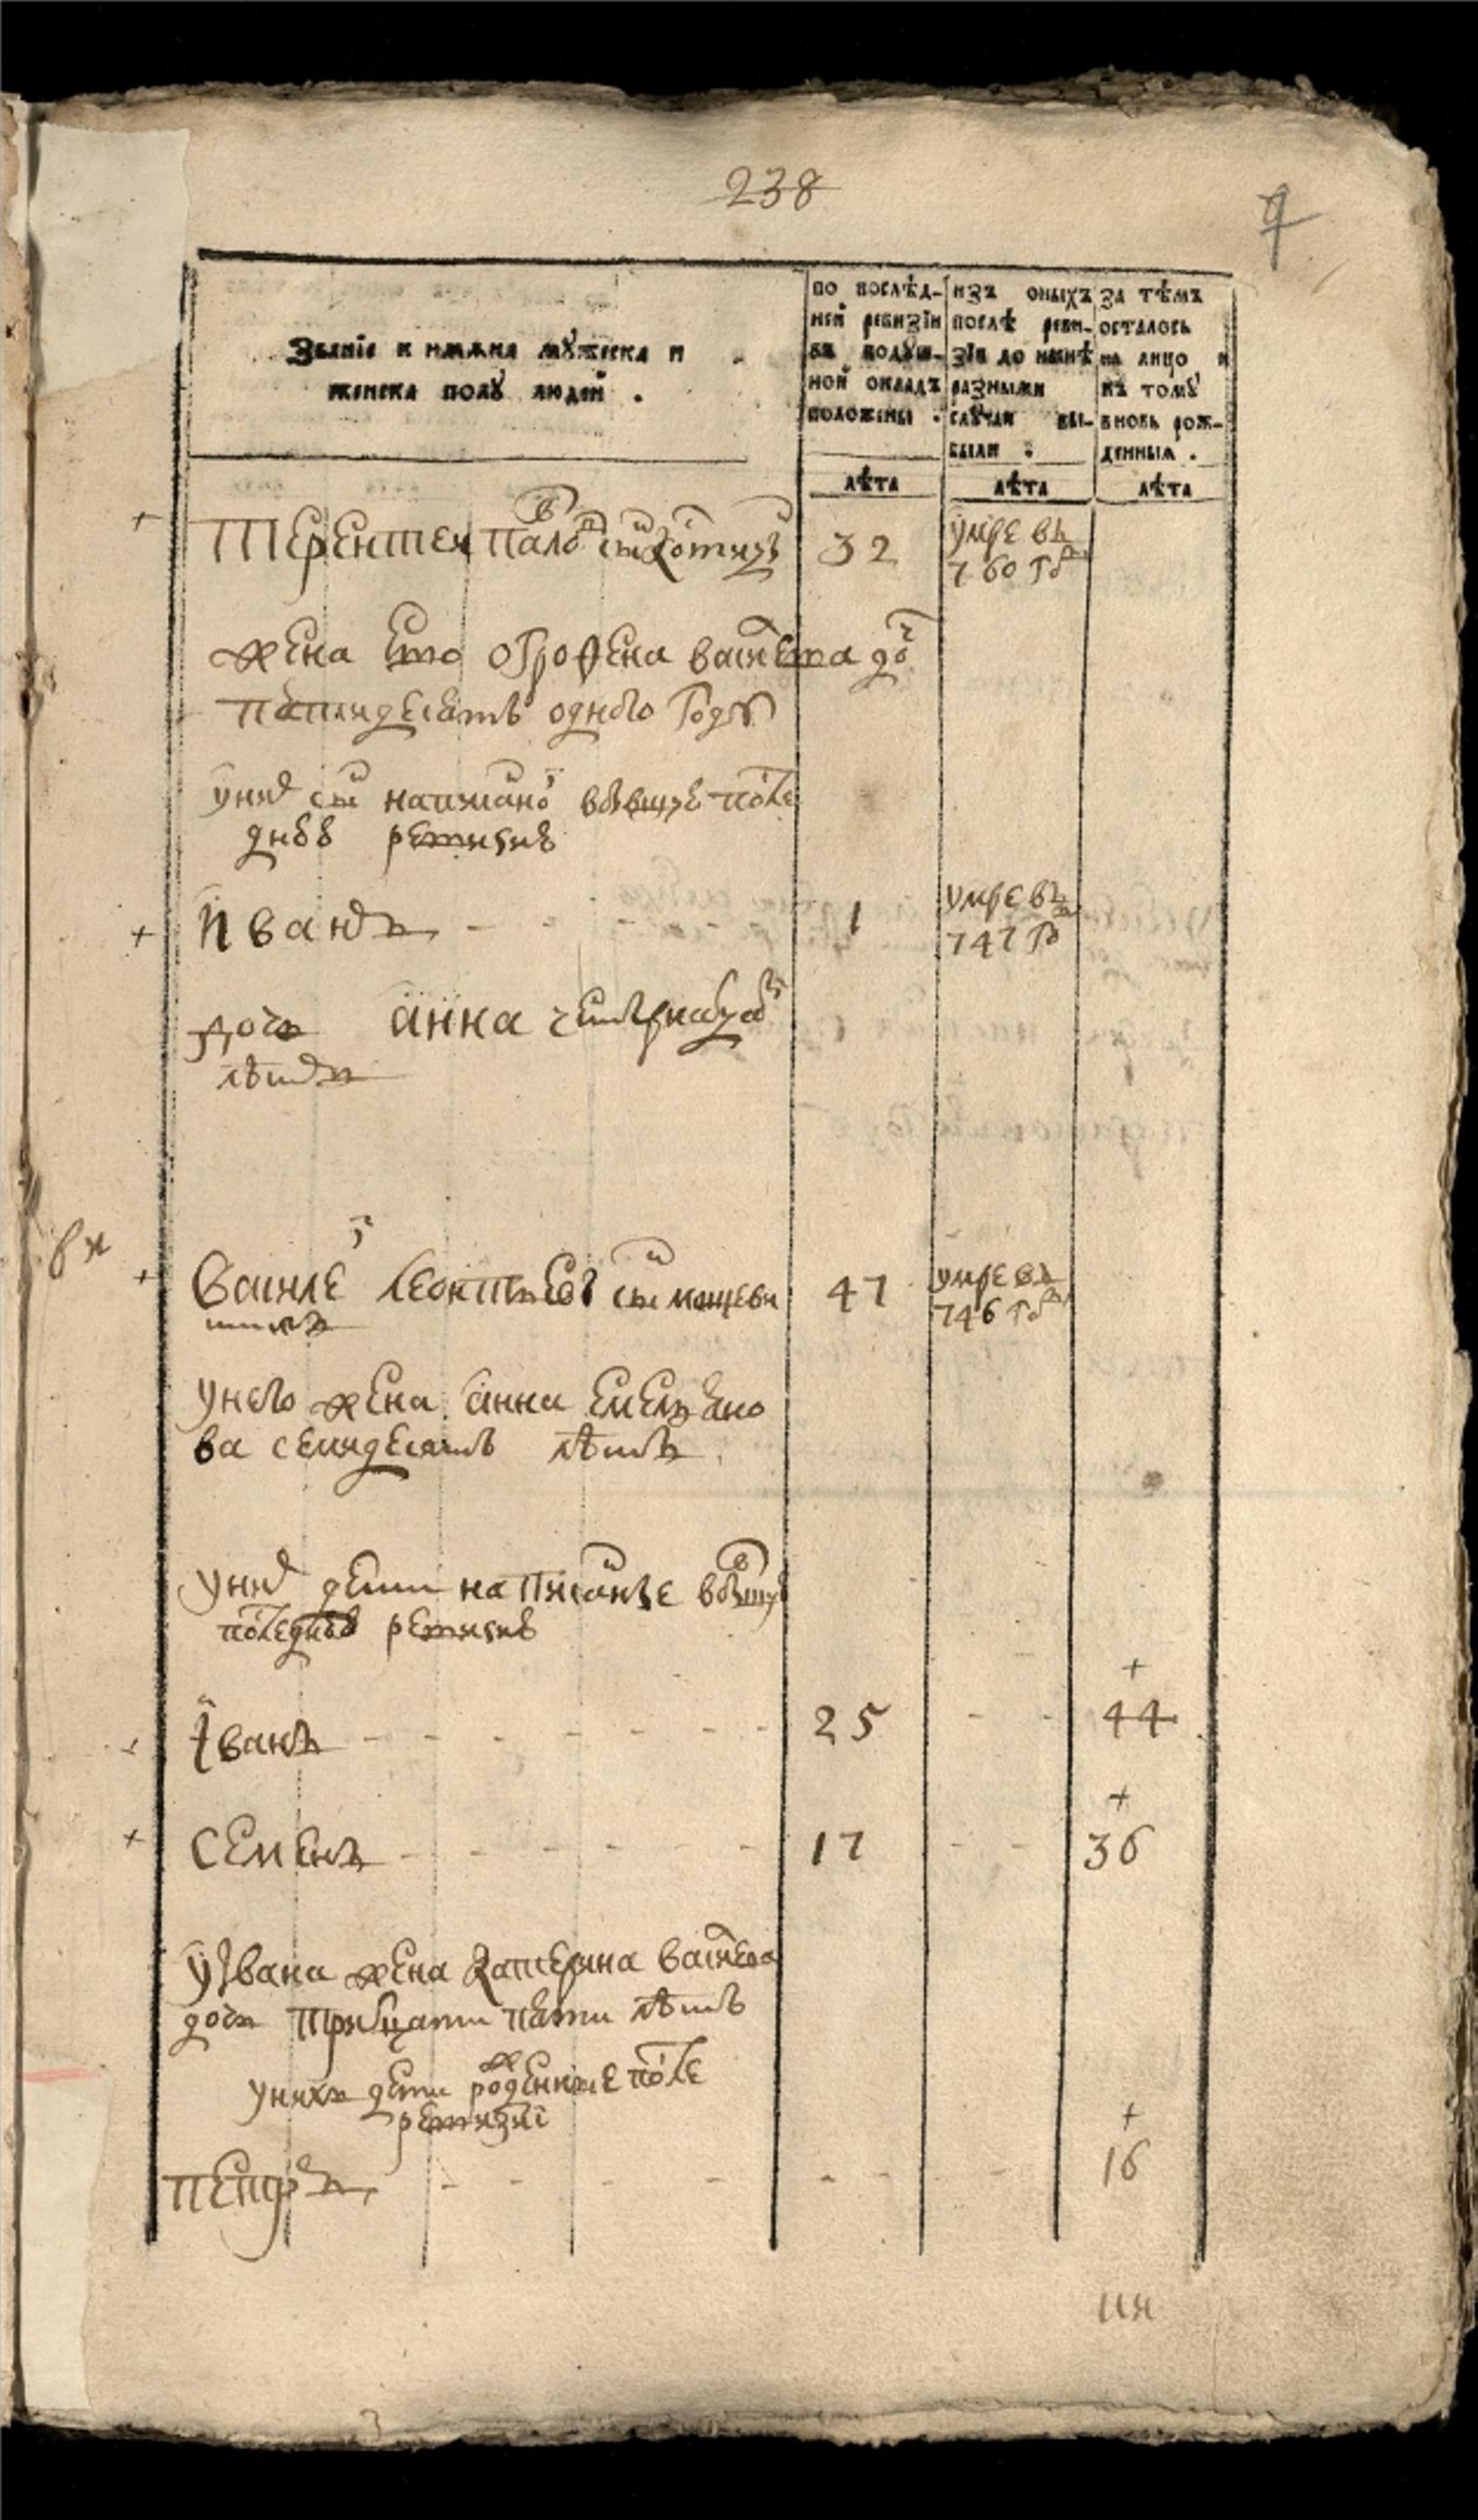 238
9
Званіе и имѧна мꙋжеска и
женска полꙋ людей .
по послѣд-
ней ревизіи
въ подꙋш-
ной окладъ
положены .
изъ оныхъ
послѣ реви-
зіи до нынѣ
разными
слꙋчаи вы-
были :
за тѣмъ
осталось
на лицо и
къ томꙋ
вновь рож-
денныѧ .
лѣта
лѣта
лѣта
Терентей павловъ сынъ
32
умре въ
760 году
жена ево огрофена васильева дочь
пятидесять одного году
у них сынъ написаной в бывшую после
днюю ревизию
Иванъ
1
умре въ
747 году
дочь анна четырнатцати
лѣтъ
Василей леонтьевъ сынъ
47
умре въ
746 году
у него жена анна емельяно
ва семидесять лѣтъ
у них дети написаные в бывшую
последнюю ревизию
+
Іванъ
25
44
+
Семенъ
17
36
у Ивана жена катерина васильева
дочь тритцати пяти лѣтъ
у нихъ дети рожденные после
ревизиі
+
петръ
16